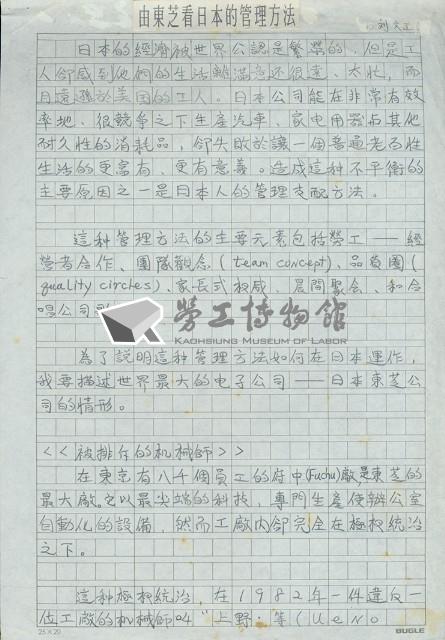 由東芝看日本的管理方法
劉文
日本的經濟被世界公認是繁榮的,但是工
人卻感到他們的生活離滿意还很遠、太忙,而
且遠遜於美国的工人。日本公司能在非常有效
率地、很競爭之下生產汽車、家电用器与其他
耐久性的消耗品,卻失敗於讓一個普通老百性
生活的更富有、更有意義。造成這种不平衡的
主要原因之一是日本人的管理支配方法。
這种管理方法的主要元素包括勞工——經
營者合作、團隊觀念(team concept)、品質圈(
quality circles)、家長式权威、晨間聚会、和合
唱公司
勞工博物館
KAOHSIUNG MUSEUM OF LABOR
為了說明這种管理方法如何在日本運作,
我要描述世界最大的电子公司——日本東芝公
司的情形。
<<被排斥的机械師>>
在東京有八千個員工的府中(Fuchu)廠是東芝的
最大廠。它以最尖端的科技,專門生產使辦公室
自動化的設備,然而工廠內卻完全在極权統治
之下。
這种極权統治,在1982年一件違反一
位工廠的机械師叫"上野·等(Ueno
25×20
BUGLE